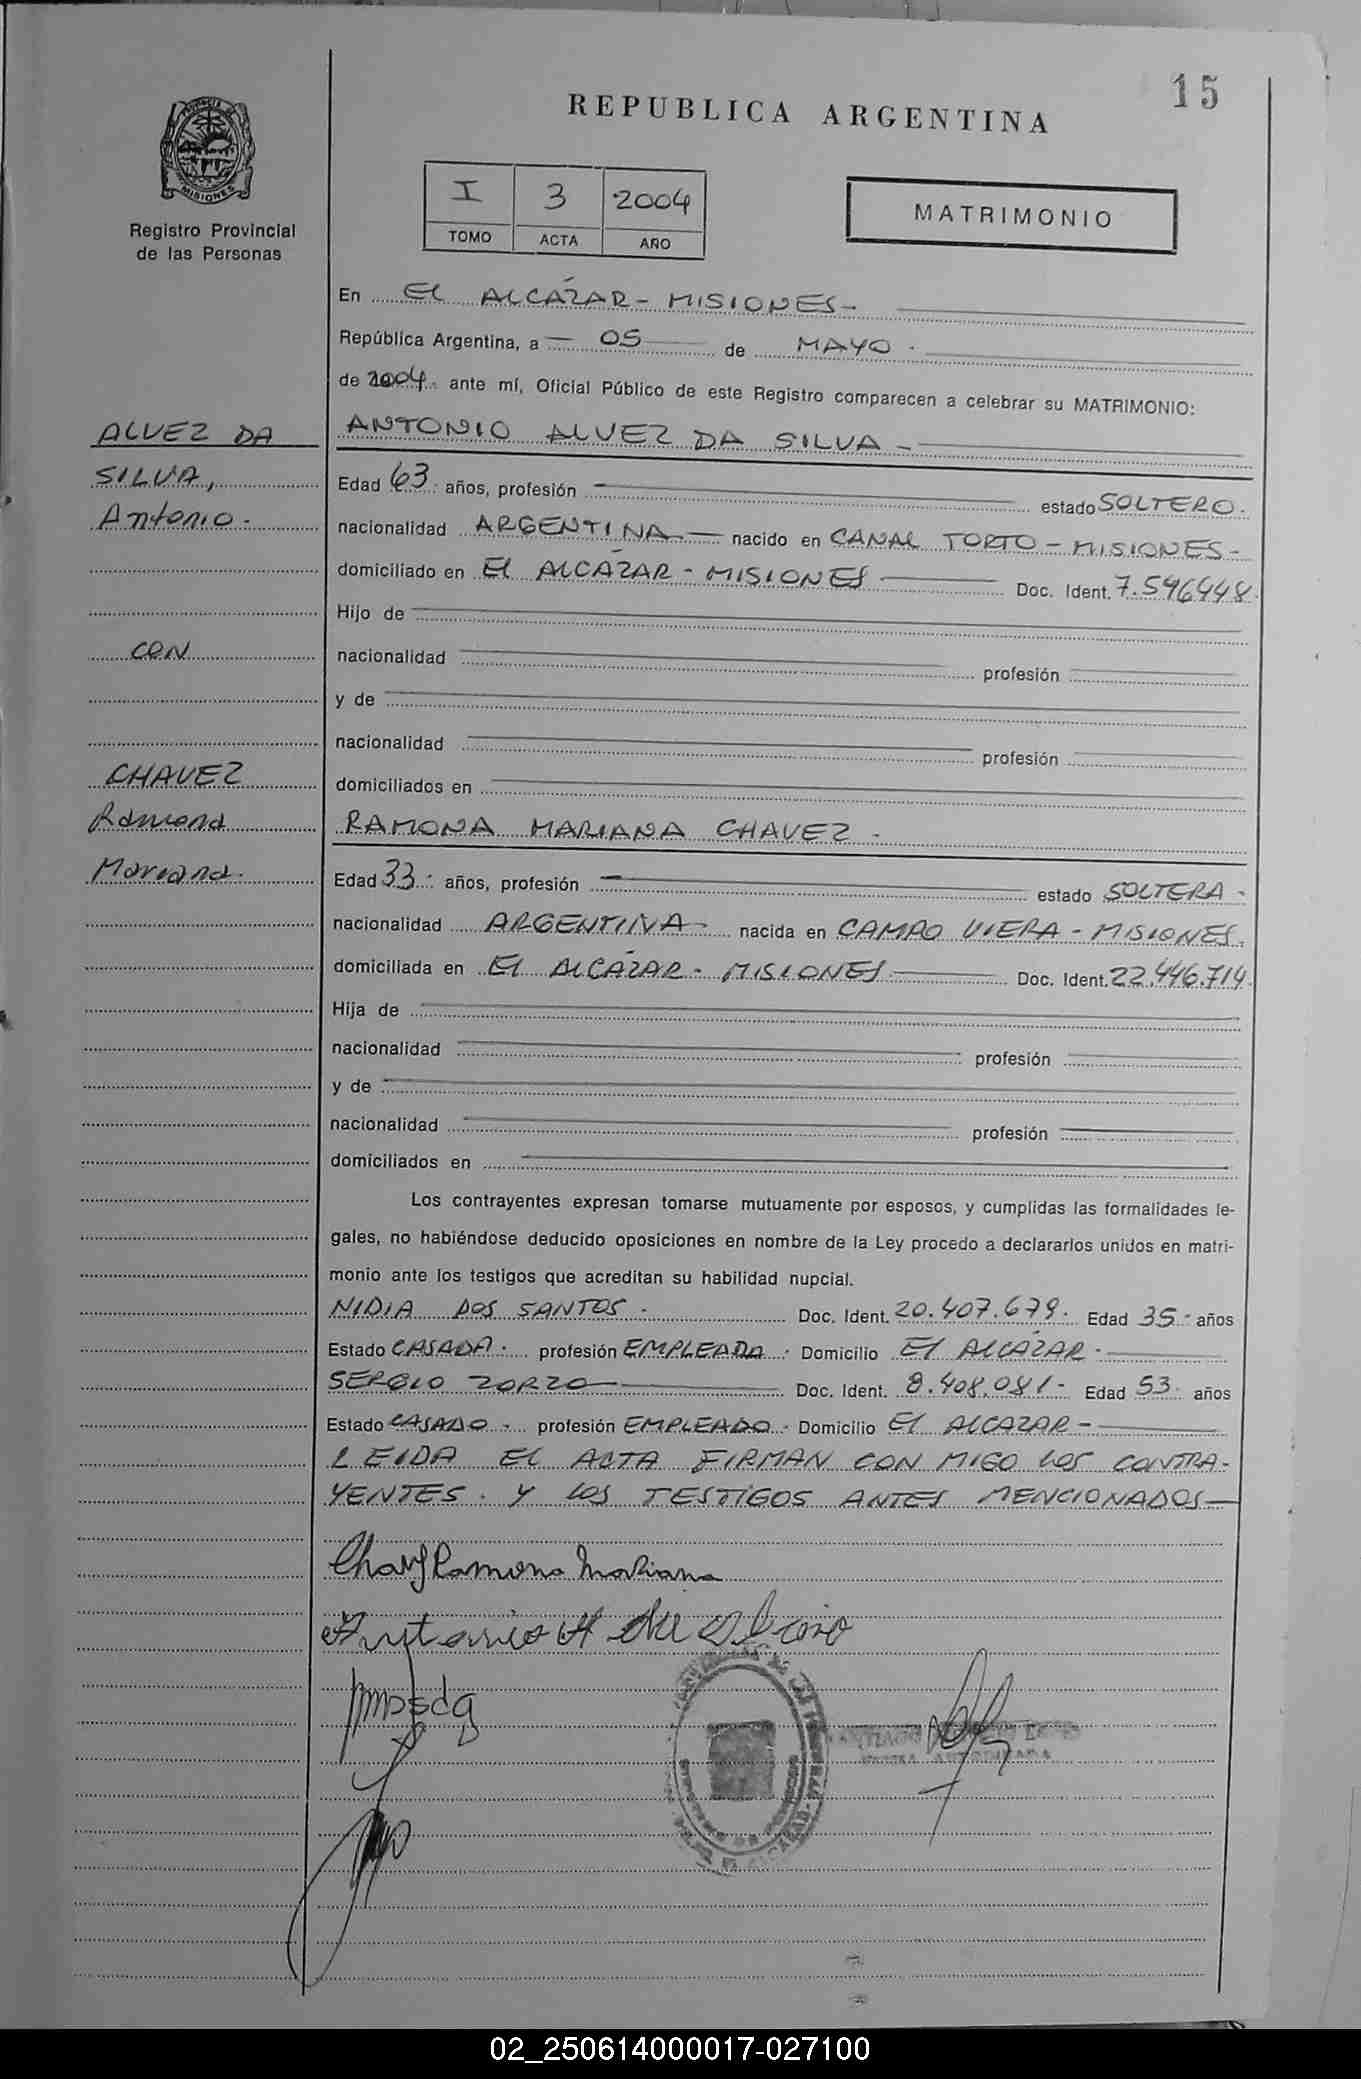 15
REPUBLICA ARGENTINA
PROVINCIA DE
MISIONES
Registro Provincial
de las Personas
I 3 2004
TOMO ACTA AÑO
MATRIMONIO
En EL ALCÁZAR - MISIONES -
República Argentina, a - 05 de MAYO -
de 2004 - ante mí, Oficial Público de este Registro comparecen a celebrar su MATRIMONIO:
ALVEZ DA
SILVA,
Antonio.
CON
CHAVEZ
Ramona
Mariana.
ANTONIO ALVEZ DA SILVA -
Edad 63 - años, profesión — estado SOLTERO.
nacionalidad ARGENTINA - nacido en CANAL TORTO - MISIONES -
domiciliado en El ALCÁZAR - MISIONES — Doc. Ident. 7.546448.
Hijo de —
nacionalidad — profesión —
y de —
nacionalidad — profesión —
domiciliados en —
RAMONA MARIANA CHAVEZ -
Edad 33 - años, profesión — estado SOLTERA -
nacionalidad ARGENTINA - nacida en CAMPO VIERA - MISIONES.
domiciliada en El ALCÁZAR - MISIONES — Doc. Ident. 22.446.714.
Hija de —
nacionalidad — profesión —
y de —
nacionalidad — profesión —
domiciliados en —
Los contrayentes expresan tomarse mutuamente por esposos, y cumplidas las formalidades le-
gales, no habiéndose deducido oposiciones en nombre de la Ley procedo a declararlos unidos en matri-
monio ante los testigos que acreditan su habilidad nupcial.
NIDIA DOS SANTOS - Doc. Ident. 20.407.679. Edad 35 - años
Estado CASADA - profesión EMPLEADA - Domicilio El ALCÁZAR -
SERGIO ZORZO — Doc. Ident. 8.408.081 - Edad 53 - años
Estado CASADO - profesión EMPLEADO - Domicilio El ALCAZAR -
LEIDA EL ACTA FIRMAN CON MIGO LOS CONTRA-
YENTES. Y LOS TESTIGOS ANTES MENCIONADOS —
Ramona Mariana
Antonio A da
02_250614000017-027100